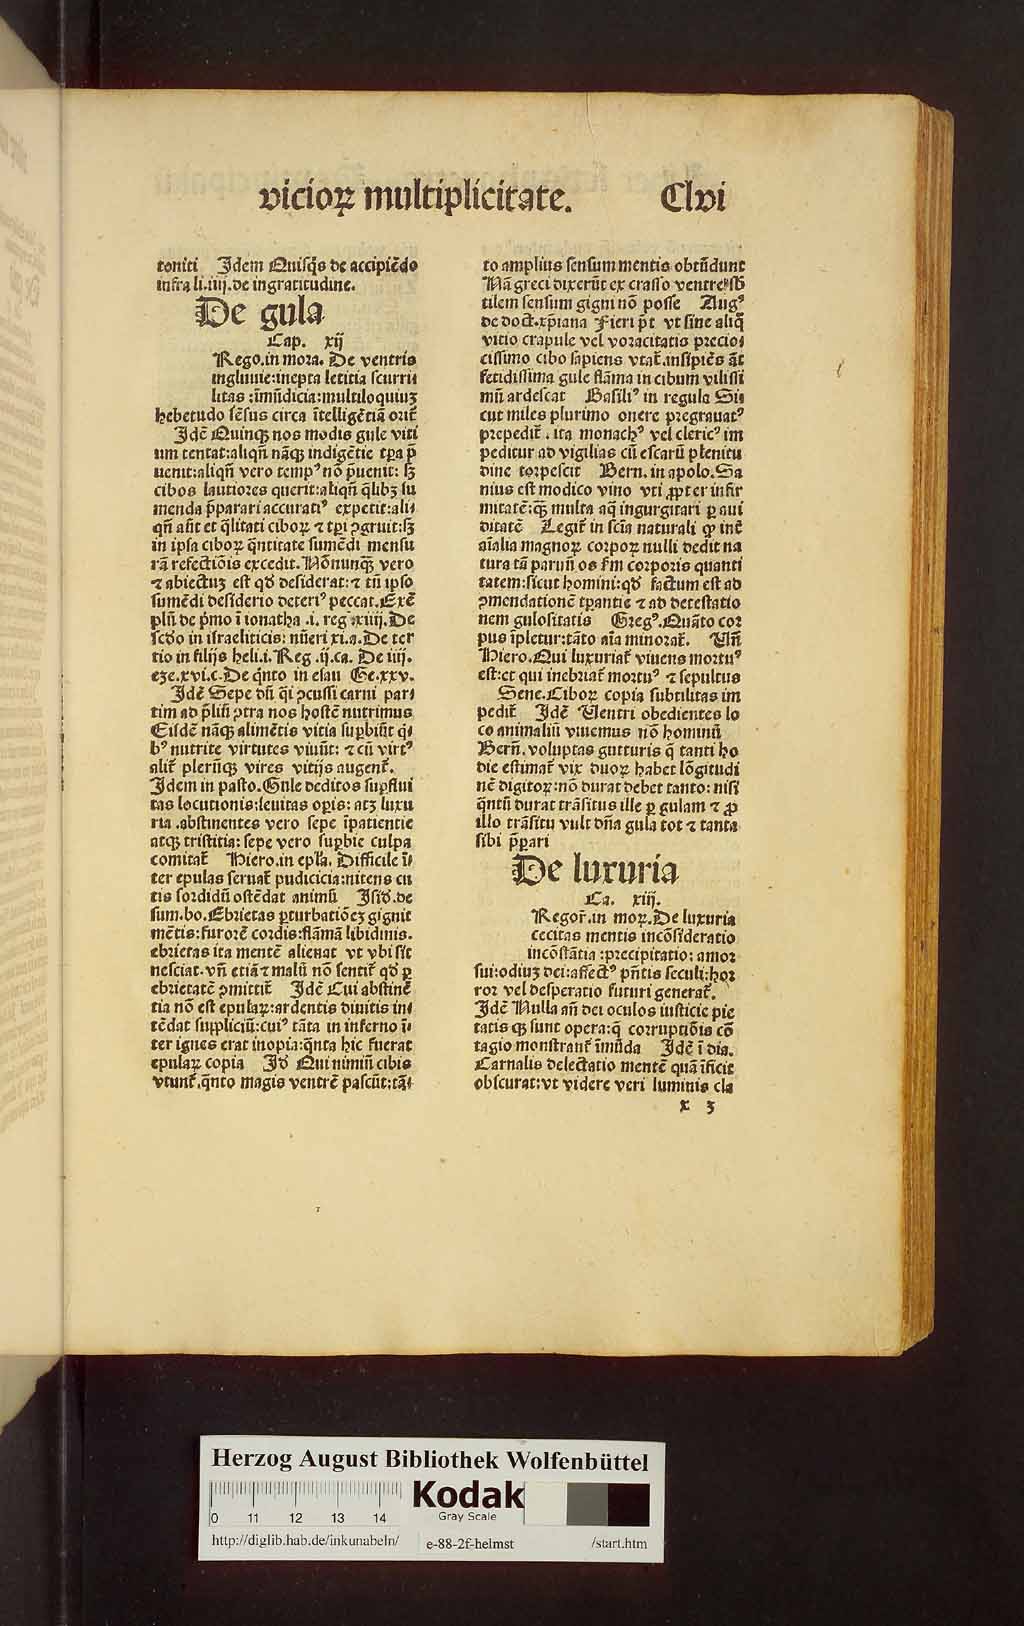 vicioꝝ multiplicitate. Clvi
toniti Idem Quisq̄s de accipiēdo
infra li.iiij.de ingratitudine.
De gula
Cap. xij
Rego.in mora. De ventris
ingluuie:inepta leticia scurri⸗
litas :īmūdicia:multiloquiuꝫ
hebetudo sēsus circa ītelligētiā orit᷑
Idē Quinqꝫ nos modis gule viti
um tentat:aliqn̄ nāqꝫ indigētie tꝑa p̄
uenit:aliqn̄ vero tempꝰ nō p̄uenit: sꝫ
cibos lautiores querit:aliqn̄ q̄libꝫ su
menda p̄parari accuratiꝰ expetit:ali⸗
qn̄ aūt et q̄litati ciboꝝ ⁊ tꝑi ꝯgruit:sꝫ
in ipsa ciboꝝ q̄ntitate sumēdi mensu
rā refectiōis excedit. Nōnunqꝫ vero
⁊ abiectuꝫ est qd̄ desiderat:⁊ tn̄ ipso
sumēdi desiderio deteriꝰ peccat.Exē
plū de p̄mo ī ionatha .i. reg xiiij.De
scd̄o in israeliticis: nūeri xi.a.De ter
tio in filijs heli.i.Reg .ij.ca. De iiij.
eze.xvi.c.De q̄nto in esau Ge.xxv.
Idē Sepe dū q̄i ꝯcussi carni par⸗
tim ad p̄liū ꝯtra nos hostē nutrimus
Eisdē nāqꝫ alimētis vitia suꝑbiūt q̄⸗
bꝰ nutrite virtutes viuūt: ⁊ cū virtꝰ
alit᷑ plerūqꝫ vires vitijs augent᷑.
Idem in pasto.Gule deditos suꝑflui
tas locutionis:leuitas oꝑis: atqꝫ luxu
ria .abstinentes vero sepe īpatientie
atqꝫ tristitia: sepe vero suꝑbie culpa
comitat᷑ Hiero.in epl̄a. Difficile ī⸗
ter epulas seruat᷑ pudicicia:nitens cu
tis sordidū ostēdat animū Isid̄.de
sum.bo.Ebrietas ꝑturbatiōeꝫ gignit
mētis:furorē cordis:flāmā libidinis.
ebrietas ita mentē alienat vt vbi sit
nesciat.vn̄ etiā ⁊ malū nō sentit᷑ qd̄ ꝑ
ebrietatē ꝯmittit᷑ Idē Cui abstinē
tia nō est epulaꝝ:ardentis diuitis in⸗
tēdat supliciū:cuiꝰ tāta in inferno ī⸗
ter ignes erat inopia:q̄nta hic fuerat
epulaꝝ copia Id̄ Qui nimiū cibis
vtunt᷑.q̄nto magis ventrē pascūt:tā⸗
to amplius sensum mentis obtūdunt
Nā greci dixerūt ex crasso ventre sb̄
tilem sensum gigni nō posse Augꝰ
de doct.xp̄iana Fieri p̄t vt sine aliq̄
vitio crapule vel voracitatis precio⸗
cissimo cibo sapiens vtat᷑.insipiēs āt
fetidissima gule flāma in cibum vilissi
mū ardescat Basiliꝰ in regula Si⸗
cut miles plurimo onere pregrauatꝰ
prepedit᷑ . ita monachꝰ vel clericꝰ im
peditur ad vigilias cū escarū plenitu
dine torpescit Bern. in apolo.Sa
nius est modico vino vti ꝓpter infir
mitatē:qꝫ multa aq̄ ingurgitari ꝑ aui
ditatē Legit᷑ in scīa naturali ꝙ int̄
aīalia magnoꝝ corpoꝝ nulli dedit na
tura tā paruū os fm corporis quanti
tatem:sicut homini:qd̄ factum est ad
ꝯmendationē tꝑantie ⁊ ad detestatio
nem gulositatis Gregꝰ.Quāto cor
pus īpletur:tāto aīa minorat᷑. Vn̄
Hiero.Qui luxuriat᷑ viuens mortuꝰ
est:et qui inebriat᷑ mortuꝰ ⁊ sepultus
Sene.Ciboꝝ copia subtilitas im
pedit᷑ Idē Ventri obedientes lo
co animaliū viuemus nō hominū
Bern̄. voluptas gutturis q̄ tanti ho
die estimat᷑ vix duoꝝ habet lōgitudi
nē digitoꝝ:nō durat debet tanto: nisi
q̄ntū durat trāsitus ille ꝑ gulam ⁊ ꝓ
illo trāsitu vult dn̄a gula tot ⁊ tanta
sibi p̄ꝑari
De luxuria
Ca. xiij.
Regor᷑.in moꝝ.De luxuria
cecitas mentis incōsideratio
incōstātia :precipitatio: amor
sui:odiuꝫ dei:affectꝰ pn̄tis seculi:hor
ror vel desperatio futuri generat᷑.
Idē Nulla an̄ dei oculos iusticie pie
tatis qꝫ sunt opera:q̄ corruptiōis cō
tagio monstrant᷑ īmūda Idē ī dia.
Carnalis delectatio mentē quā īficit
obscurat:vt videre veri luminis cla
x 3
Herzog August Bibliothek Wolfenbüttel
Kodak
Gray Scale
0 11 12 13 14
http://diglib.hab.de/inkunabeln/ e-88-2f-helmst /start.htm